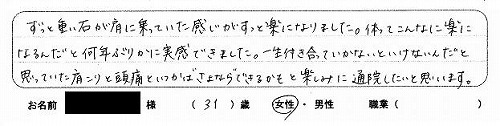 ずっと重い石が肩に乗っていた感じがすっと楽になりました。体ってこんなに楽に
なるんだと何年ぶりかに実感できました。一生付き合っていかないといけないんだと
思っていた肩こりと頭痛といつかはさよならできるかもと楽しみに通院したいと思います。
お名前 様 (31)歳 女性・男性 職業( )